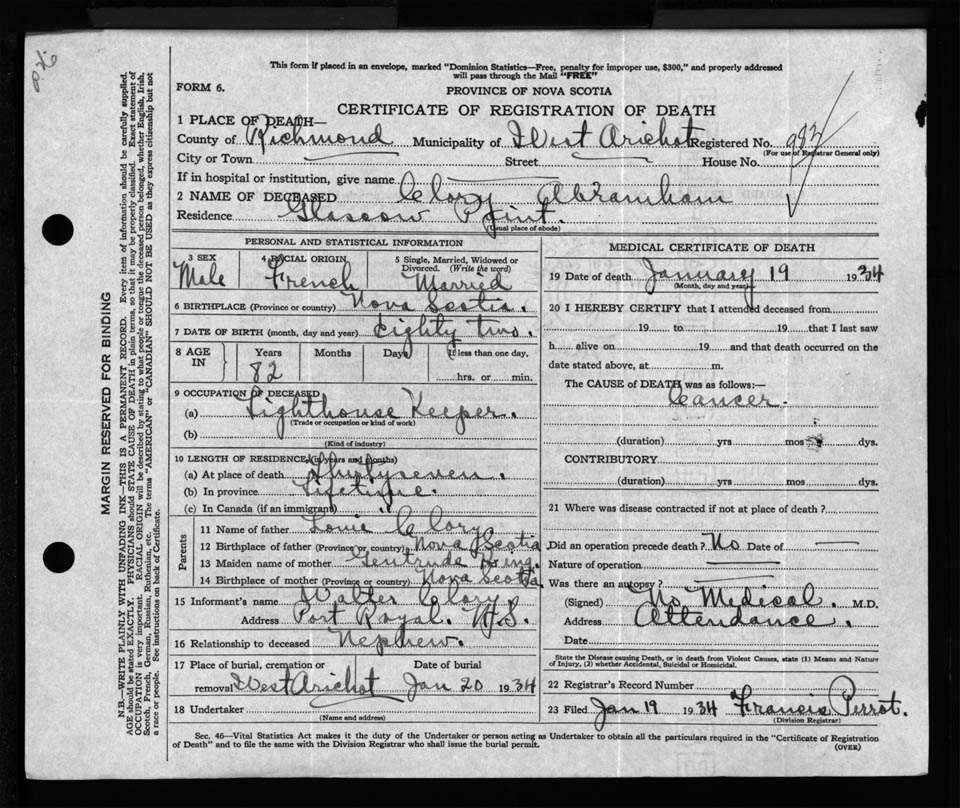 This form if placed in an envelope, marked "Dominion Statistics—Free, penalty for improper use, $300," and properly addressed
will pass through the Mail "FREE"
FORM 6.
PROVINCE OF NOVA SCOTIA
CERTIFICATE OF REGISTRATION OF DEATH
1 PLACE OF DEATH—
County of Richmond Municipality of West Arichat Registered No. 983
(For use of Registrar General only)
City or Town Street House No.
If in hospital or institution, give name
2 NAME OF DECEASED Clory Abramham
Residence Glascow Point.
(Usual place of abode)
PERSONAL AND STATISTICAL INFORMATION
3 SEX 4 RACIAL ORIGIN 5 Single, Married, Widowed or
Divorced. (Write the word)
Male French Married
6 BIRTHPLACE (Province or country) Nova Scotia.
7 DATE OF BIRTH (month, day and year) Eighty two.
8 AGE IN Years Months Days If less than one day,
82 hrs. or min.
9 OCCUPATION OF DECEASED
(a) Lighthouse Keeper.
(Trade or occupation or kind of work)
(b)
(Kind of industry)
10 LENGTH OF RESIDENCE (in years and months)
(a) At place of death Thirtyseven.
(b) In province Lifetime.
(c) In Canada (if an immigrant)
Parents
11 Name of father Louie Clory
12 Birthplace of father (Province or country) Nova Scotia
13 Maiden name of mother Gertrude King.
14 Birthplace of mother (Province or country) Nova Scotia
15 Informant's name Walter Clory
Address Port Royal. N.S.
16 Relationship to deceased Nephew.
17 Place of burial, cremation or Date of burial
removal West Arichat Jan 20 1934
18 Undertaker
(Name and address)
MEDICAL CERTIFICATE OF DEATH
19 Date of death January 19 1934
(Month, day and year)
20 I HEREBY CERTIFY that I attended deceased from
19 to 19 that I last saw
h alive on 19 and that death occurred on the
date stated above, at m.
The CAUSE of DEATH was as follows:—
Cancer.
(duration) yrs mos dys.
CONTRIBUTORY
(duration) yrs mos dys.
21 Where was disease contracted if not at place of death?
Did an operation precede death? No Date of
Nature of operation
Was there an autopsy?
(Signed) No Medical. M.D.
Address Attendance.
Date
State the Disease causing Death, or in death from Violent Causes, state (1) Means and Nature
of Injury, (2) whether Accidental, Suicidal or Homicidal.
22 Registrar's Record Number
23 Filed Jan 19 1934 Francis Perrot.
(Division Registrar)
Sec. 46—Vital Statistics Act makes it the duty of the Undertaker or person acting as Undertaker to obtain all the particulars required in the "Certificate of Registration
of Death" and to file the same with the Division Registrar who shall issue the burial permit.
(OVER)
MARGIN RESERVED FOR BINDING
N.B.—WRITE PLAINLY WITH UNFADING INK—THIS IS A PERMANENT RECORD. Every item of information should be carefully supplied.
AGE should be stated EXACTLY. PHYSICIANS should STATE CAUSE OF DEATH in plain terms, so that it may be properly classified. Exact statement of
OCCUPATION is very important. RACIAL ORIGIN will be described by stating to what people or tongue the deceased person belonged, whether English, Irish,
Scotch, French, German, Russian, Ruthenian, etc. The terms "AMERICAN" or "CANADIAN" SHOULD NOT BE USED as they express citizenship but not
a race or people. See instructions on back of Certificate.